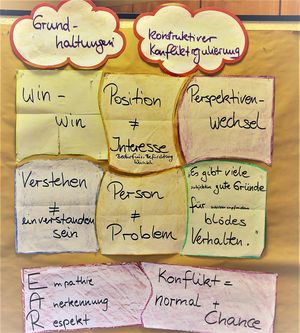 Grund-
haltungen
konstruktiver
Konfliktregulierung
Win -
Win
Position
≠
Interesse
Perspektiven-
wechsel
Verstehen
≠
einverstanden
sein
Person
≠
Problem
"Es gibt viele
gute Gründe
für
blödes
Verhalten."
Empathie
Anerkennung
Respekt
Konflikt =
normal +
Chance